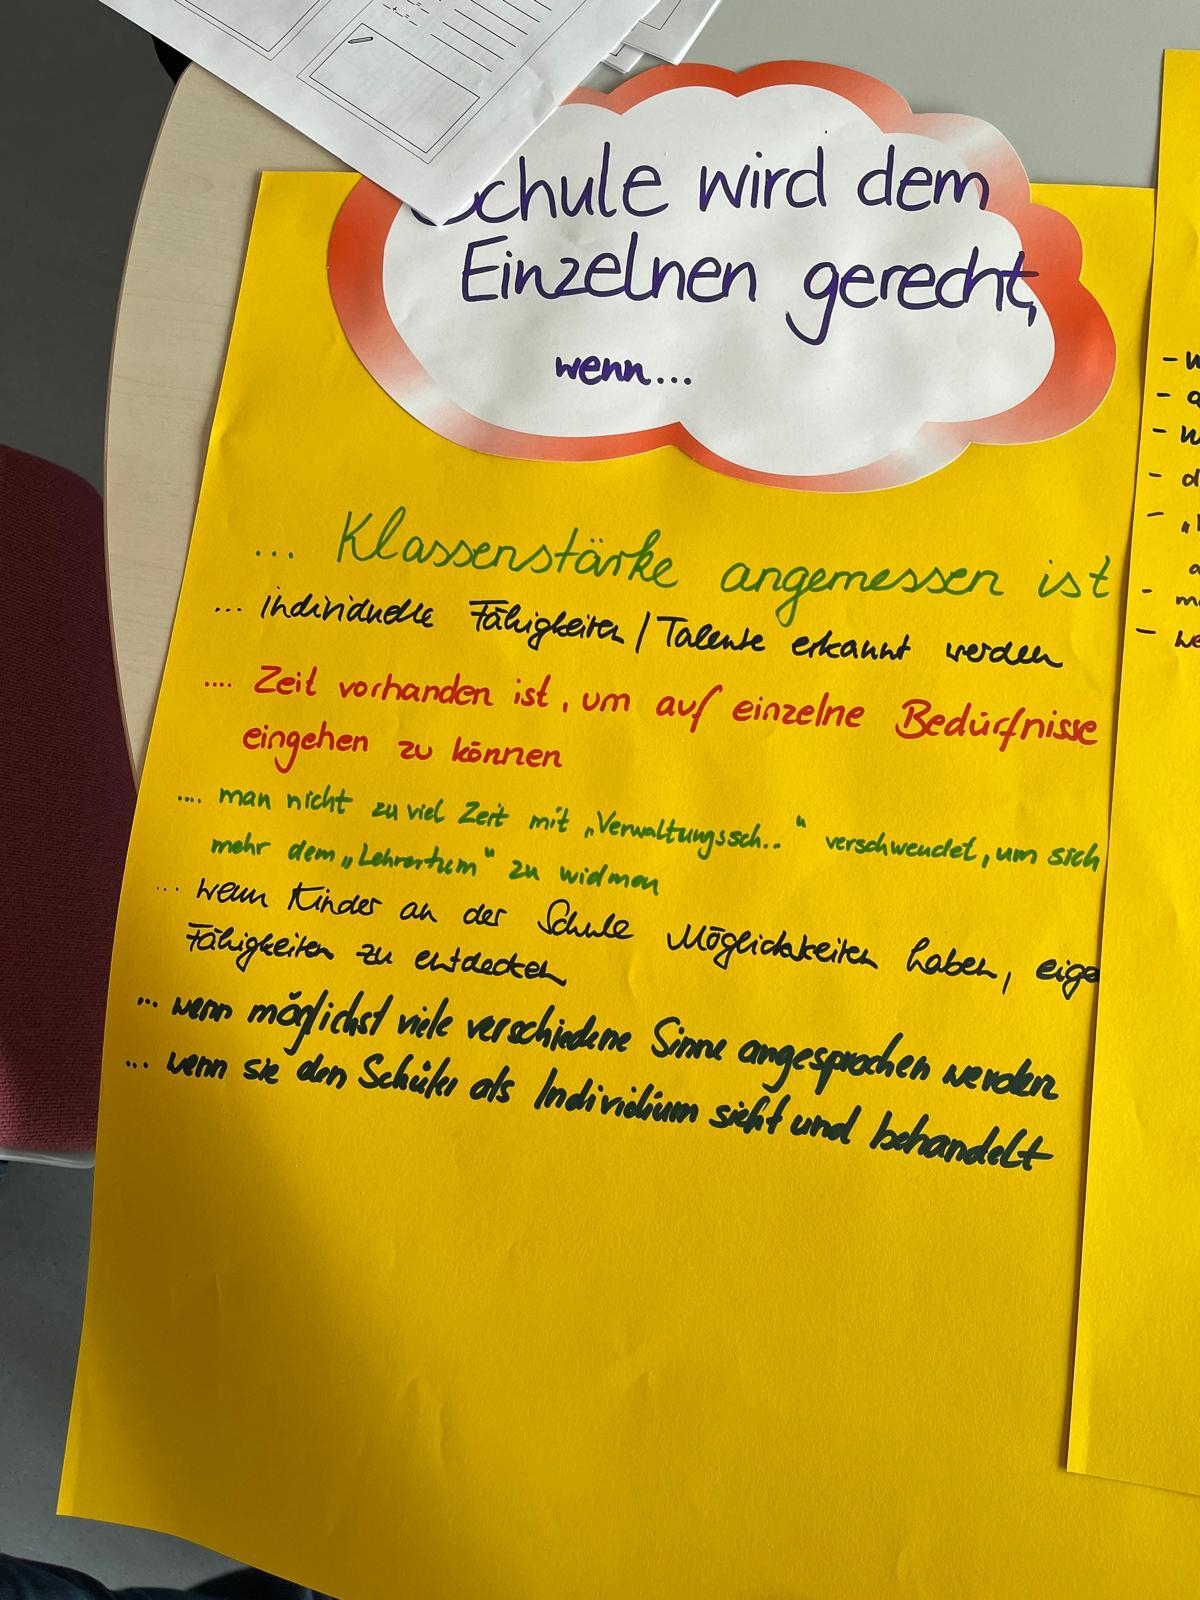 Schule wird dem
Einzelnen gerecht,
wenn...
... Klassenstärke angemessen ist
... individuelle Fähigkeiten / Talente erkannt werden
.... Zeit vorhanden ist, um auf einzelne Bedürfnisse
eingehen zu können
.... man nicht zu viel Zeit mit „Verwaltungssch.." verschwendet, um sich
mehr dem „Lehrertum" zu widmen
... wenn Kinder an der Schule Möglichkeiten haben, eige
Fähigkeiten zu entdecken
... wenn möglichst viele verschiedene Sinne angesprochen werden
... wenn sie den Schüler als Individium sieht und behandelt